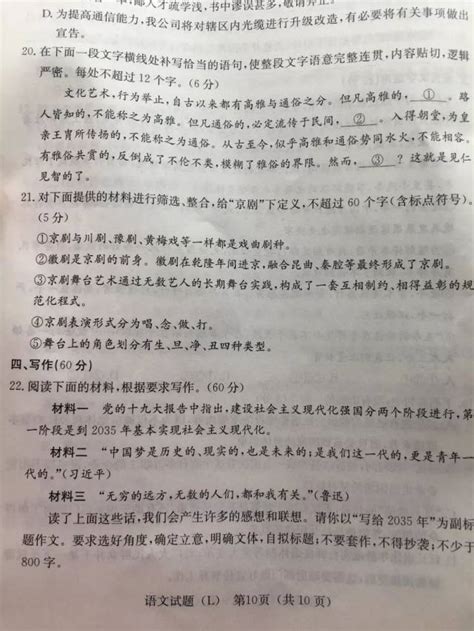 郦人才疏学浅,书中谬误甚多,敬请斧正。
D. 为提高通信能力,我公司将对辖区内光缆进行升级改造,有必要将有关事项做出
宣告。
20. 在下面一段文字横线处补写恰当的语句,使整段文字语意完整连贯,内容贴切,逻辑
严密。每处不超过12个字。(6分)
文化艺术,行为举止,自古以来都有高雅与通俗之分。但凡高雅的,①。路
人皆知的,不能称之为高雅。但凡通俗的,必定流传于民间,②。入得朝堂,为皇
亲王胄所传扬的,不能称之为通俗。从古至今,似乎高雅和通俗势同水火,不能相容。
有雅俗共赏的,反倒成了不伦不类,模糊了雅俗的界限。然而,③?这就是见仁
见智的了。
21. 对下面提供的材料进行筛选、整合,给“京剧”下定义,不超过60个字(含标点符号)。
(5分)
①京剧与川剧、豫剧、黄梅戏等一样都是戏曲剧种。
②徽剧是京剧的前身。徽剧在乾隆年间进京,融合昆曲、秦腔等最终形成了京剧。
③京剧舞台艺术通过无数艺人的长期舞台实践,构成了一套互相制约、相得益彰的规
范化程式。
④京剧表演形式分为唱、念、做、打。
⑤舞台上的角色划分有生、旦、净、丑四种类型。
四、写作(60分)
22. 阅读下面的材料,根据要求写作。(60分)
材料一 党的十九大报告中指出,建设社会主义现代化强国分两个阶段进行,第
一阶段是到2035年基本实现社会主义现代化。
材料二 “中国梦是历史的、现实的,也是未来的;是我们这一代的,更是青年一
代的。”(习近平)
材料三 “无穷的远方,无数的人们,都和我有关。”(鲁迅)
读了上面这些话,我们会产生许多的感想和联想。请你以“写给2035年”为副标
题作文。要求选好角度,确定立意,明确文体,自拟标题;不要套作,不得抄袭;不少于
800字。
语文试题(L) 第10页(共10页)